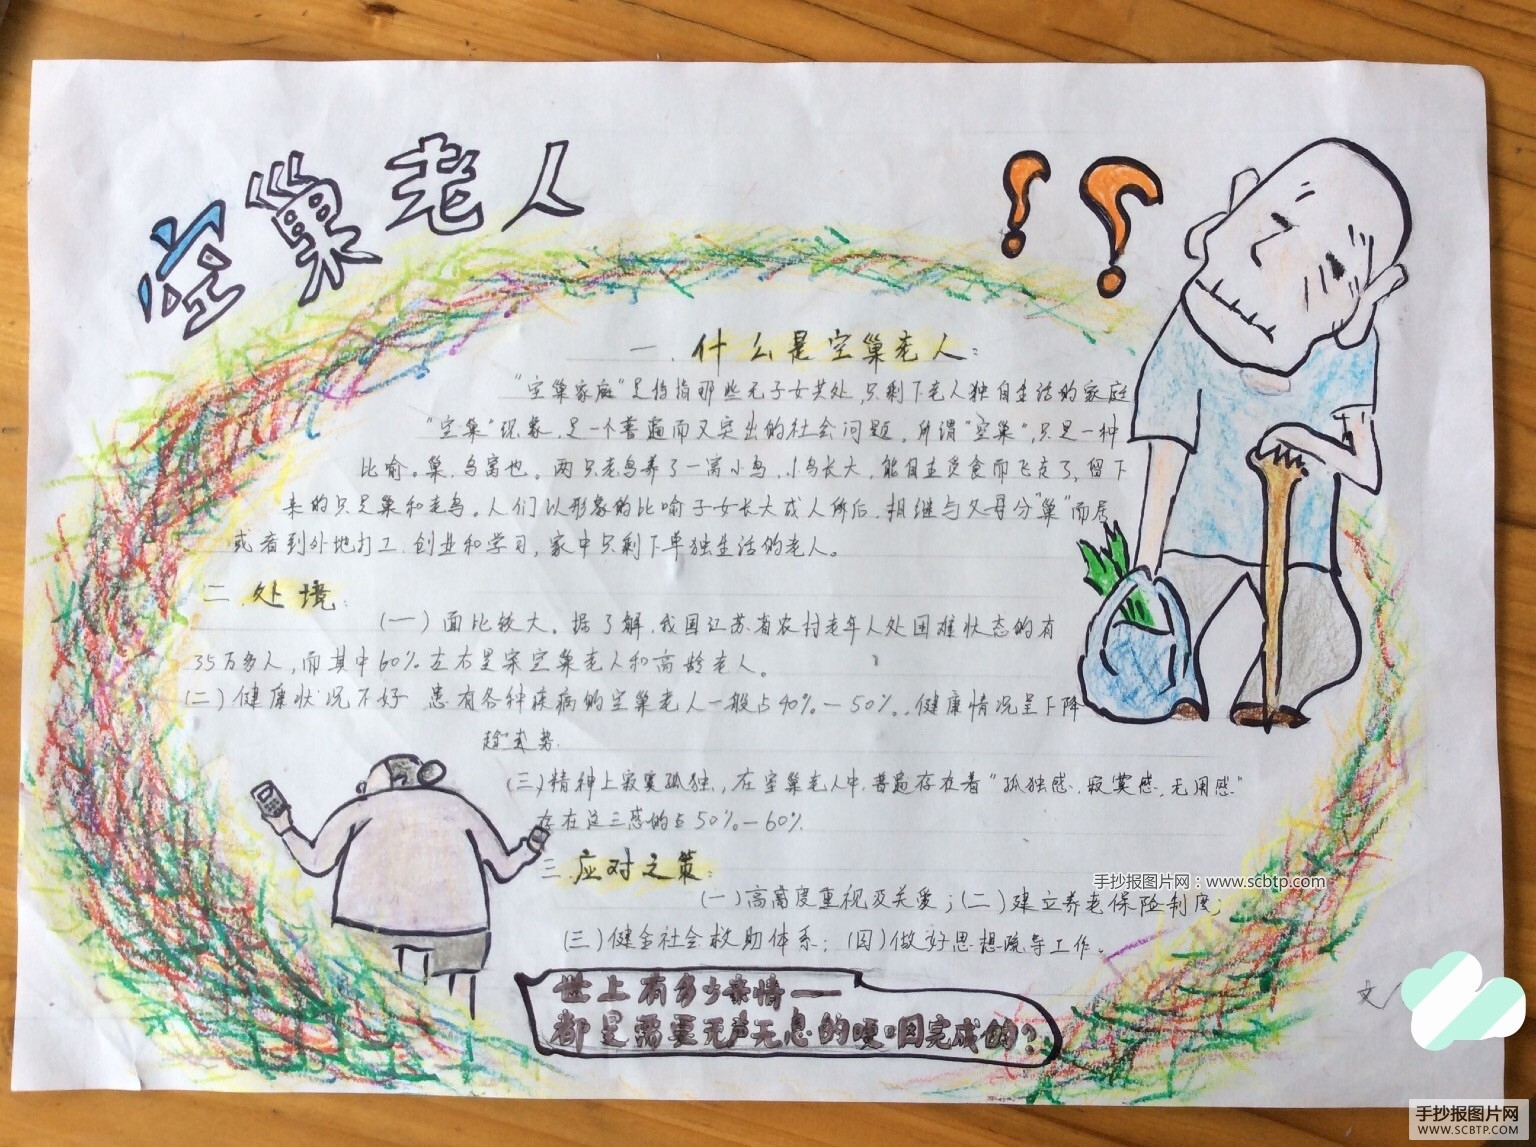 空巢老人
??
一.什么是空巢老人:
"空巢家庭"是传指那些无子女共处,只剩下老人独自生活的家庭
"空巢"现象,是一个普遍而又突出的社会问题。所谓"空巢",只是一种
比喻。巢,鸟窝也。两只老鸟养了一窝小鸟,小鸟长大,能自主觅食而飞走了,留下
来的只是巢和老鸟。人们以形象的比喻子女长大成人后,相继与父母分"巢"而居
或者到外地打工.创业和学习,家中只剩下单独生活的老人。
二.处境:
(一)面比较大。据了解,我国江苏省农村老年人处困难状态的有
35万多人,而其中60%左右是空巢老人和高龄老人。
(二)健康状况不好 患有各种疾病的空巢老人一般占40%-50%.,健康情况呈下降
趋势.
(三)精神上寂寞孤独,,在空巢老人中,普遍存在着"孤独感,寂寞感,无用感"
存在这三感的占50%-60%.
三.应对之策:
手抄报图片网:www.scbtp.com
(一)高高度重视及关爱;(二)建立养老保险制度;
(三)健全社会救助体系;(四)做好思想疏导工作。
世上有多少亲情—
都是需要无声无息的哽咽完成的?
文
手抄报图片网
WWW.SCBTP.COM